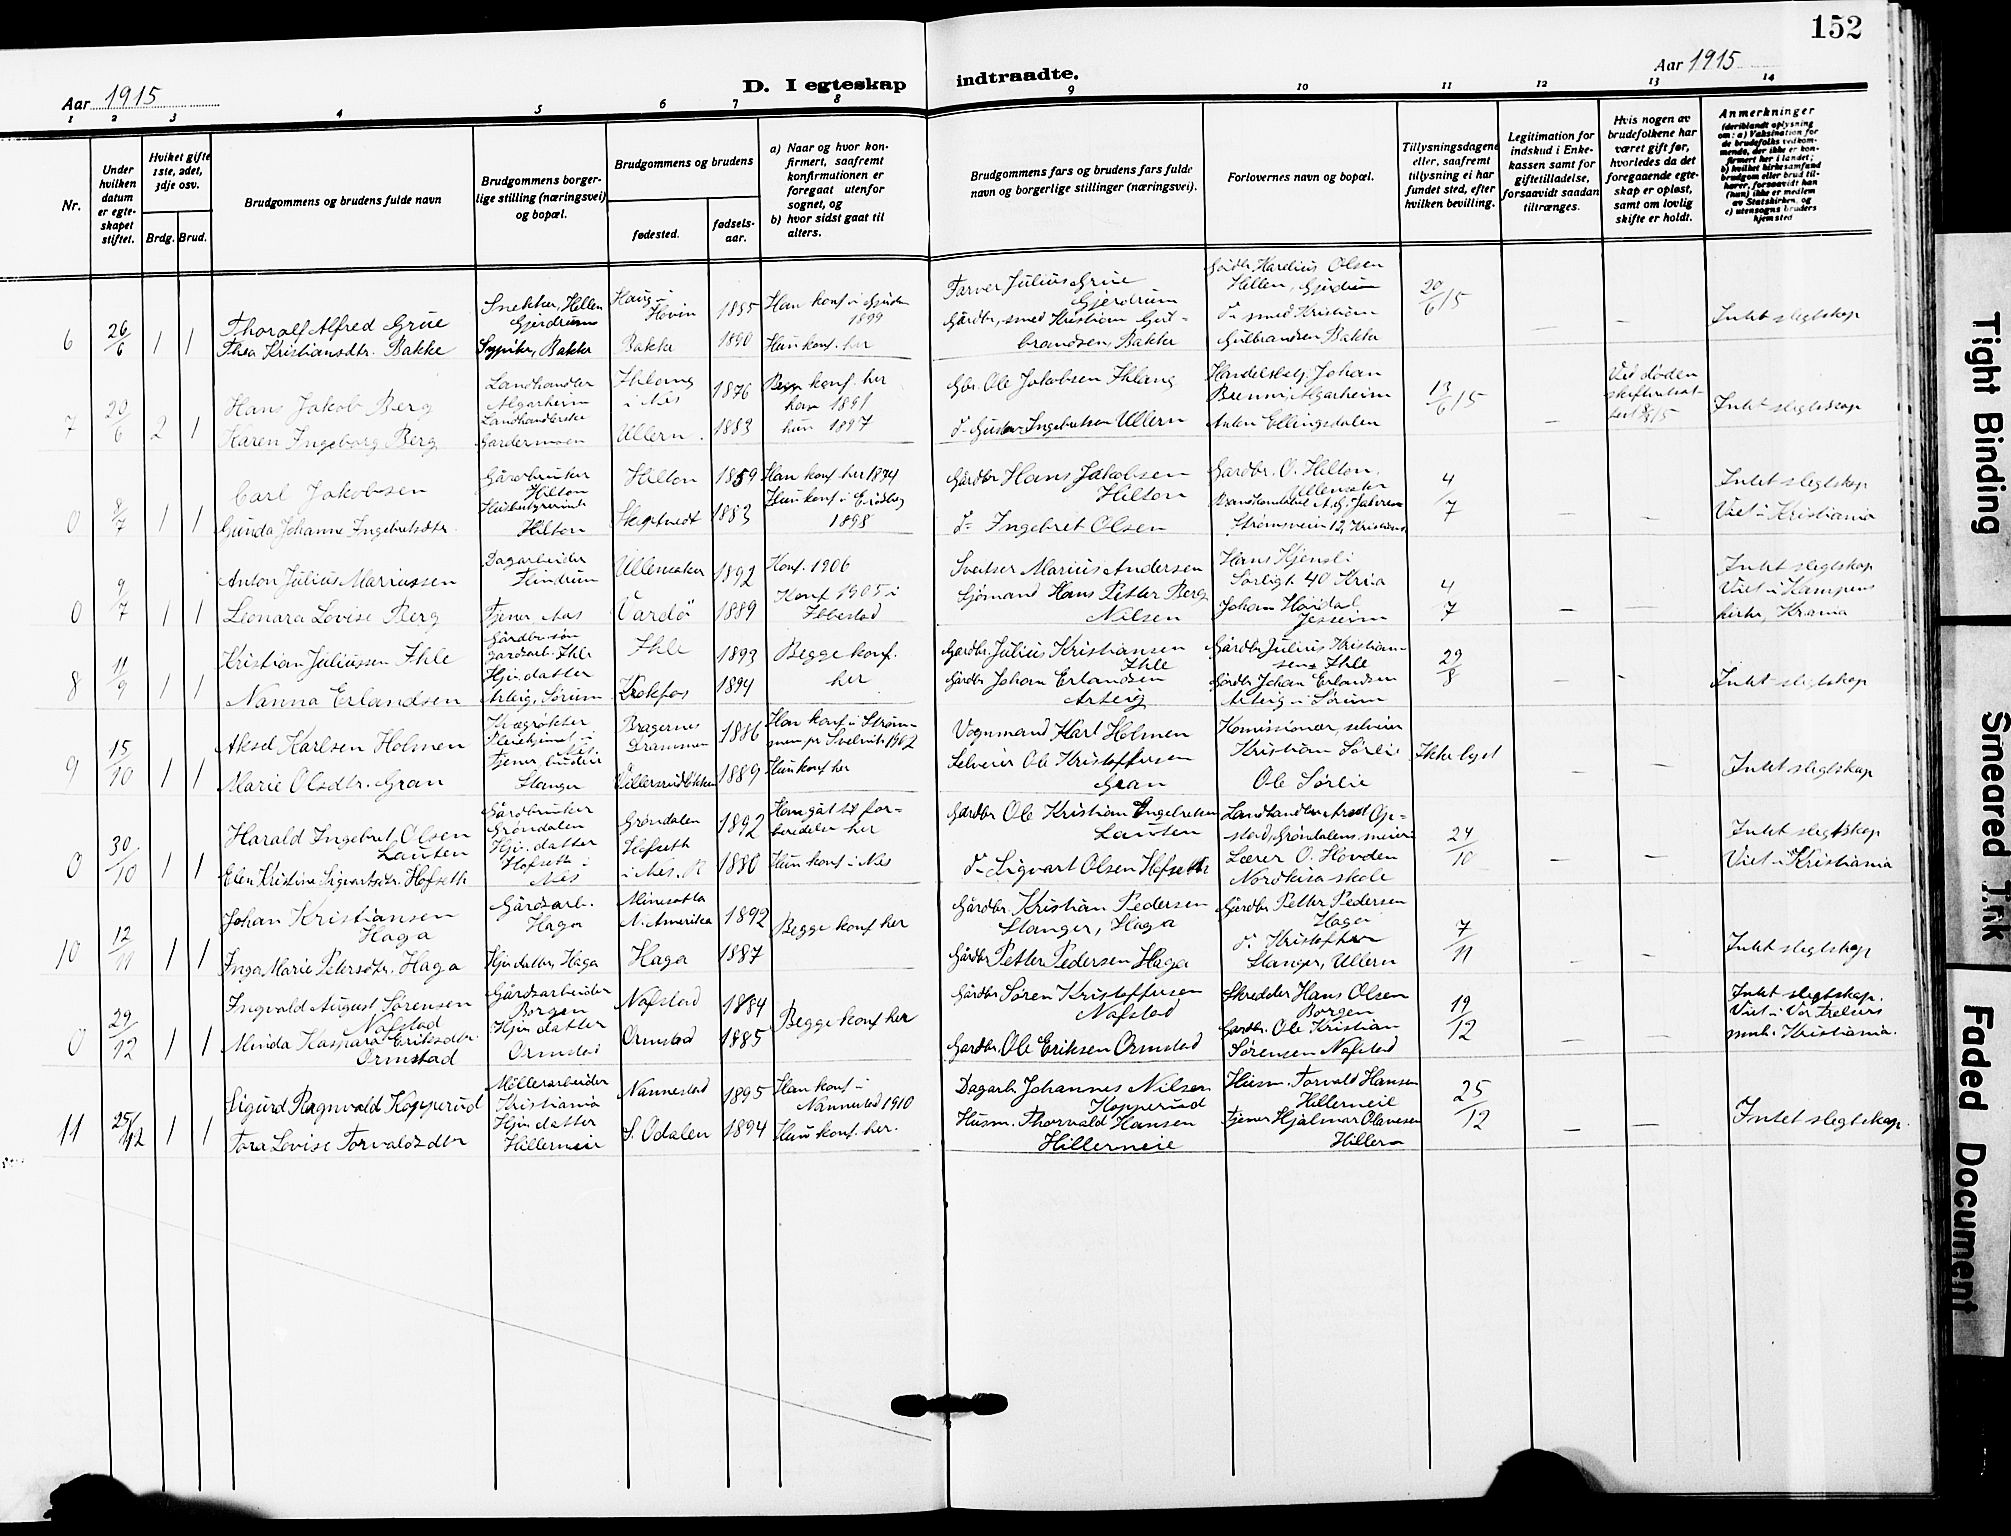 152
Aar 1915
D. I egteskap indtraadte.
Aar 1915
1 2 3 4 5 6 7 8 9 10 11 12 13 14
Nr.
Under hvilken datum er egteskapet stiftet.
Hvilket gifte 1ste, 2det, 3dje osv.
Brdg. Brud.
Brudgommens og brudens fulde navn
Brudgommens borgerlige stilling (næringsvei) og bopæl.
Brudgommens og brudens
fødested.
fødselsaar.
a) Naar og hvor konfirmert, saafremt konfirmationen er foregaat utenfor sognet, og
b) hvor sidst gaat til alters.
Brudgommens fars og brudens fars fulde navn og borgerlige stillinger (næringsvei).
Forlovernes navn og bopæl.
Tillysningsdagene eller, saafremt tillysning ei har fundet sted, efter hvilken bevilling.
Legitimation for indskud i Enkekassen samt for giftetilladelse, forsaavidt saadan tiltrænges.
Hvis nogen av brudefolkene har været gift før, hvorledes da det foregaaende egteskap er opløst, samt om lovlig skifte er holdt.
Anmerkninger
6 26/6 1 1
Thoralf Alfred Grue
Thea Kristiansdtr. Bakke
Snekker, Hillen
Gjerdrum
Sypike, Bakke
Haug i
Hovin
Bakke
1885
1890
1899
Hun konf. her
Farver Julius Grue
Gjerdrum
Gårdbr, smed Kristian Gul-
brandsen, Bakke
Gårdbr Hardius Olsen
Hillen, Gjerdrum
Do smed Kristian
Gulbrandsen Bakke
20/6 15
Intet slegtskap
7 20/6 2 1
Hans Jakob Berg
Karen Ingeborg Berg
Landhandler
Algarheim
Landhandlerske
Gardermoen
Ihlang
i Nes
Ullern
1876
1883
Begge konf. her
han 1891
hun 1897
Gbr. Ole Jakobsen Ihlang
Do Gustav Ingebretsen Ullern
Handelsbetj. Johan
Brenni, Algarheim
Anton Ellingsdalen
13/6 15
Ved døden
Intet slegtskap
0 1 1
Carl Jakobsen
Gunda Johanne Ingebretsdtr.
Gårdbruker
Hilton
Husbestyrerinde
Hilton
Hilton
Skeptvedt
1859
1883
Han konf her 1874
Hun konf i Eidsberg
1898
Gårdbr Hans Jakobsen
Hilton
Do Ingebret Olsen
Gardbr. O. Hilton,
Ullensaker
Strømsveien 12, Kristiania
4/7
Intet slegtskap
Viet i Kristiania
0 9/7 1 1
Anton Julius Mariussen
Leonara Lovise Berg
Dagarbeider
Flindrum
Tjener, Aas
Ullensaker
Vardö
1892
1889
Konf. 1906
Konf 1905 i
Ibbestad
Sveitser Marius Andersen
Sjömand Hans Petter Berg
Nilsen
Hans Kjensli
Sørligt. 40 Kria
Johan Höidal
Jessheim
4/7
Intet slegtskap
Viet i Kampens
kirke, Krania
8 11/9 1 1
Kristian Juliussen Ihle
Nanna Erlandsen
Gårdbr.søn
Gårdsarb. Ihle
Hjv. datter
Arteig, Sørum
Ihle
1893
1894
Begge konf.
her
Gårdbr. Julius Kristiansen
Ihle
Gårdbr Johan Erlandsen
Arteig
Gårdbr Julius Kristian-
sen Ihle
Gårdbr Johan Erlandsen
Arteig i Sørum
29/8
Intet slegtskap
9 15/10 1 1
Aksel Karlsen Holmen
Marie Olsdtr. Gran
Pleiehjemet i
Nes.
Tjener, budeie
Slanger
Bragernes
Drammen
1886
1889
Han konf i Strøm-
men pr Svelvik 1902
Hun konf her
Vognmand Karl Holmen
Selveier Ole Kristoffersen
Gran
Komissionær, selveier
Kristian Sørlie
Ole Sørlie
Ikke lyst
Intet slegtskap
0 30/10 1 1
Harald Ingebret Olsen
Lauten
Elen Kristine Sigvartsdtr. Hofseth
Gårdbruker
Grøndalen
Hjv. datter
Hofseth i
Nes
Grøndalen
Hofseth
i Nes. R
1892
1880
Han gåt til for-
beredelse her
Hun konf i Nes
Gårdbr Ole Kristian Ingebretsen
Lauten
Do Sigvart Olsen Hofseth
stad, Grøndalens meieri
Lærer O. Hovden
Nordkisa skole
24/10
Intet slegtskap
Viet i Kristiania
10 12/11 1 1
Johan Kristiansen
Haga
Inga Marie Petersdtr. Haga
Gårdsarb.
Haga
Hjv. datter, Haga
Minesotta
N. Amerika
Haga
1892
1887
Begge konf her
Gårdbr. Kristian Pedersen
Slanger, Haga
Gårdbr Petter Pedersen Haga
Gårdbr Petter Pedersen
Haga
Do Kristoffer
Slanger, Ullern
7/11
Intet slegtskap
0 29/12 1 1
Ingvald August Sørensen
Nafstad
Minda Kaspara Eriksdtr.
Ormstad
Gårdsarbeider
Borgen
Hjv. datter
Ormstad
Nafstad
Ormstad
1884
1885
Begge konf her
Gårdbr Søren Kristoffersen
Nafstad
Gårdbr. Ole Eriksen Ormstad
Skredder Hans Olsen
Borgen
Gardbr. Ole Kristian
Sørensen Nafstad
19/12
Intet slegtskap.
Viet i Vor Frelsers
mnh. Kristiania.
11 25/12 1 1
Sigurd Ragnvald Kopperud
Tora Lovise Torvaldsdtr
Møllerarbeider
Kristiania
Hjv. datter
Hillerneie
Nannestad
S. Odalen
1895
1894
Han konf i
Nannestad 1910
Hun konf. her.
Dagarb. Johannes Nilsen
Kopperud
Husm. Thorvald Hansen
Hillerneie
Husm. Torvald Hansen
Hillerneie
Tjener Hjalmar Olavesen
Hillern
25/12
Intet slegtskap.
Tight Binding
Smeared Ink
Faded Document